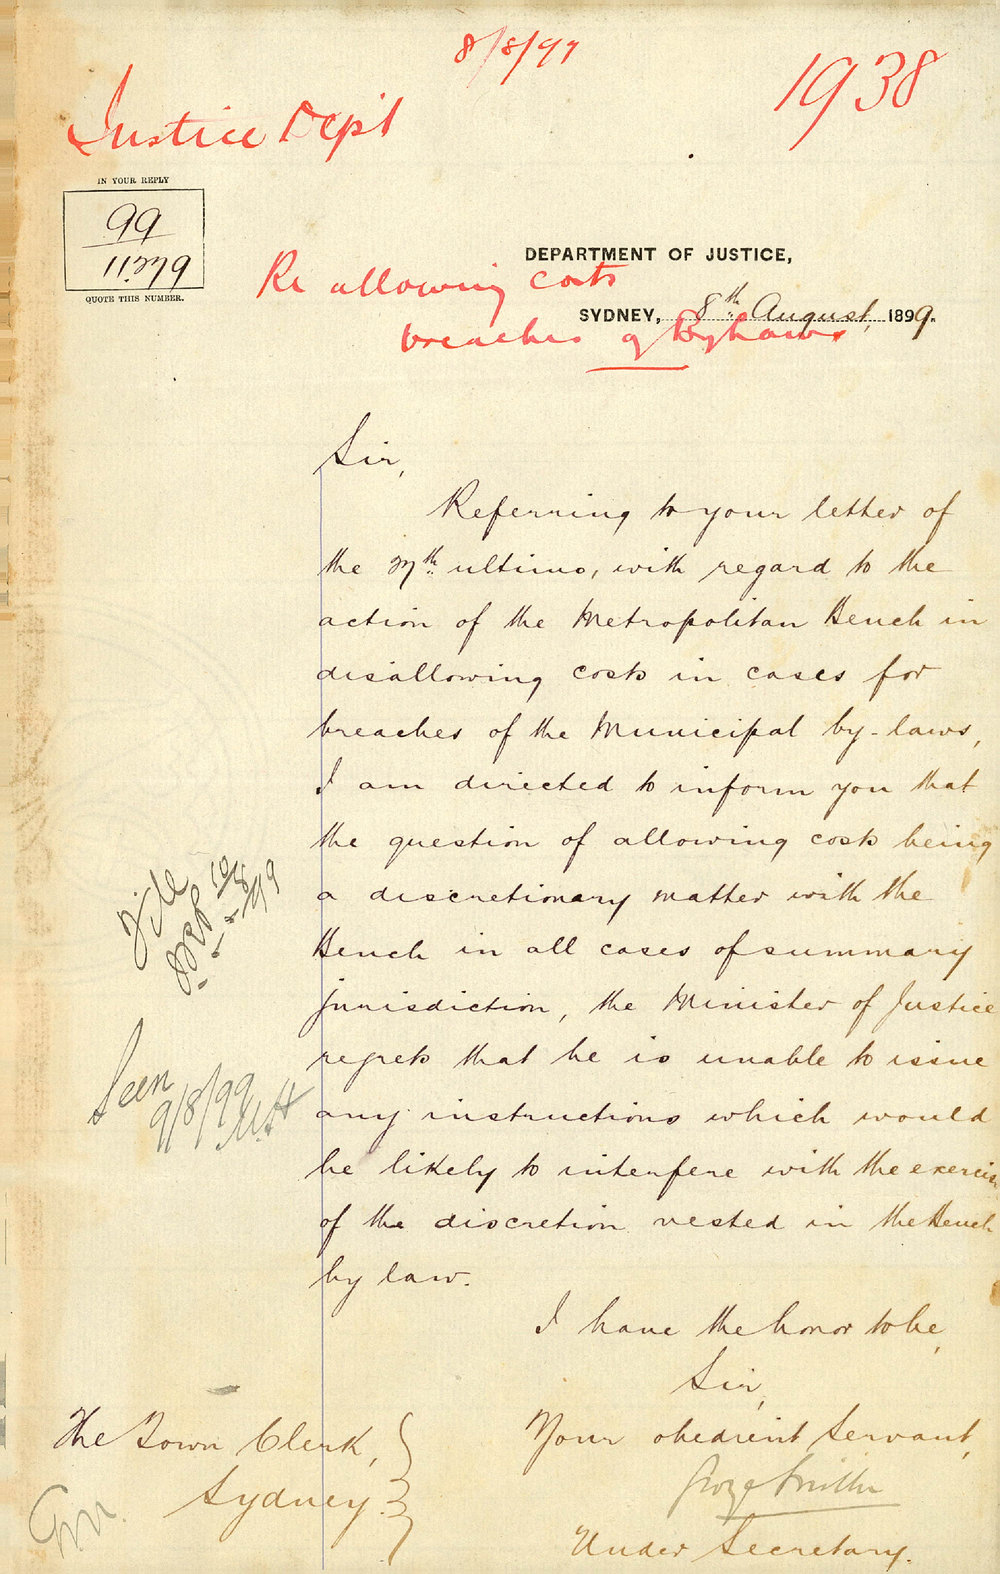 8/8/99
1938
Justice Dept
IN YOUR REPLY
99
11279
QUOTE THIS NUMBER.
DEPARTMENT OF JUSTICE,
Re allowing costs
SYDNEY, 8th August, 1899.
breaches of Byhaws
Sir,
Referring to your letter of
the 27th ultimo, with regard to the
action of the Metropolitan Bench in
disallowing costs in cases for
breaches of the Municipal by-laws,
I am directed to inform you that
the question of allowing costs being
a discretionary matter with the
Bench in all cases of summary
jurisdiction, the Minister of Justice
regrets that he is unable to issue
any instructions which would
be likely to interfere with the exercise
of the discretion vested in the Bench
by law.
File
10/8/99
Seen
9/8/99
I have the honor to be,
Sir,
Your obedient Servant,
Under Secretary.
The Town Clerk,
Sydney.